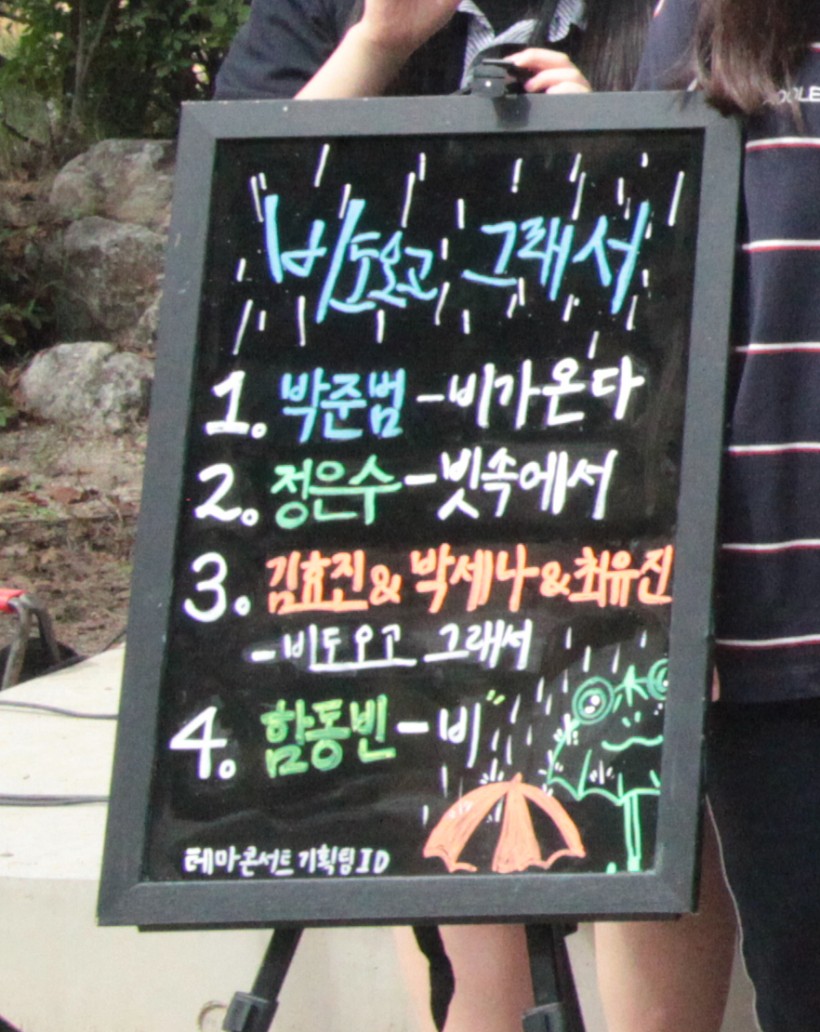 비도오고 그래서
1. 박준범 - 비가온다
2. 정은수 - 빗속에서
3. 김효진 & 박세나 & 최유진
- 비도오고 그래서
4. 함동빈 - 비
테마콘서트 기획팀 ID